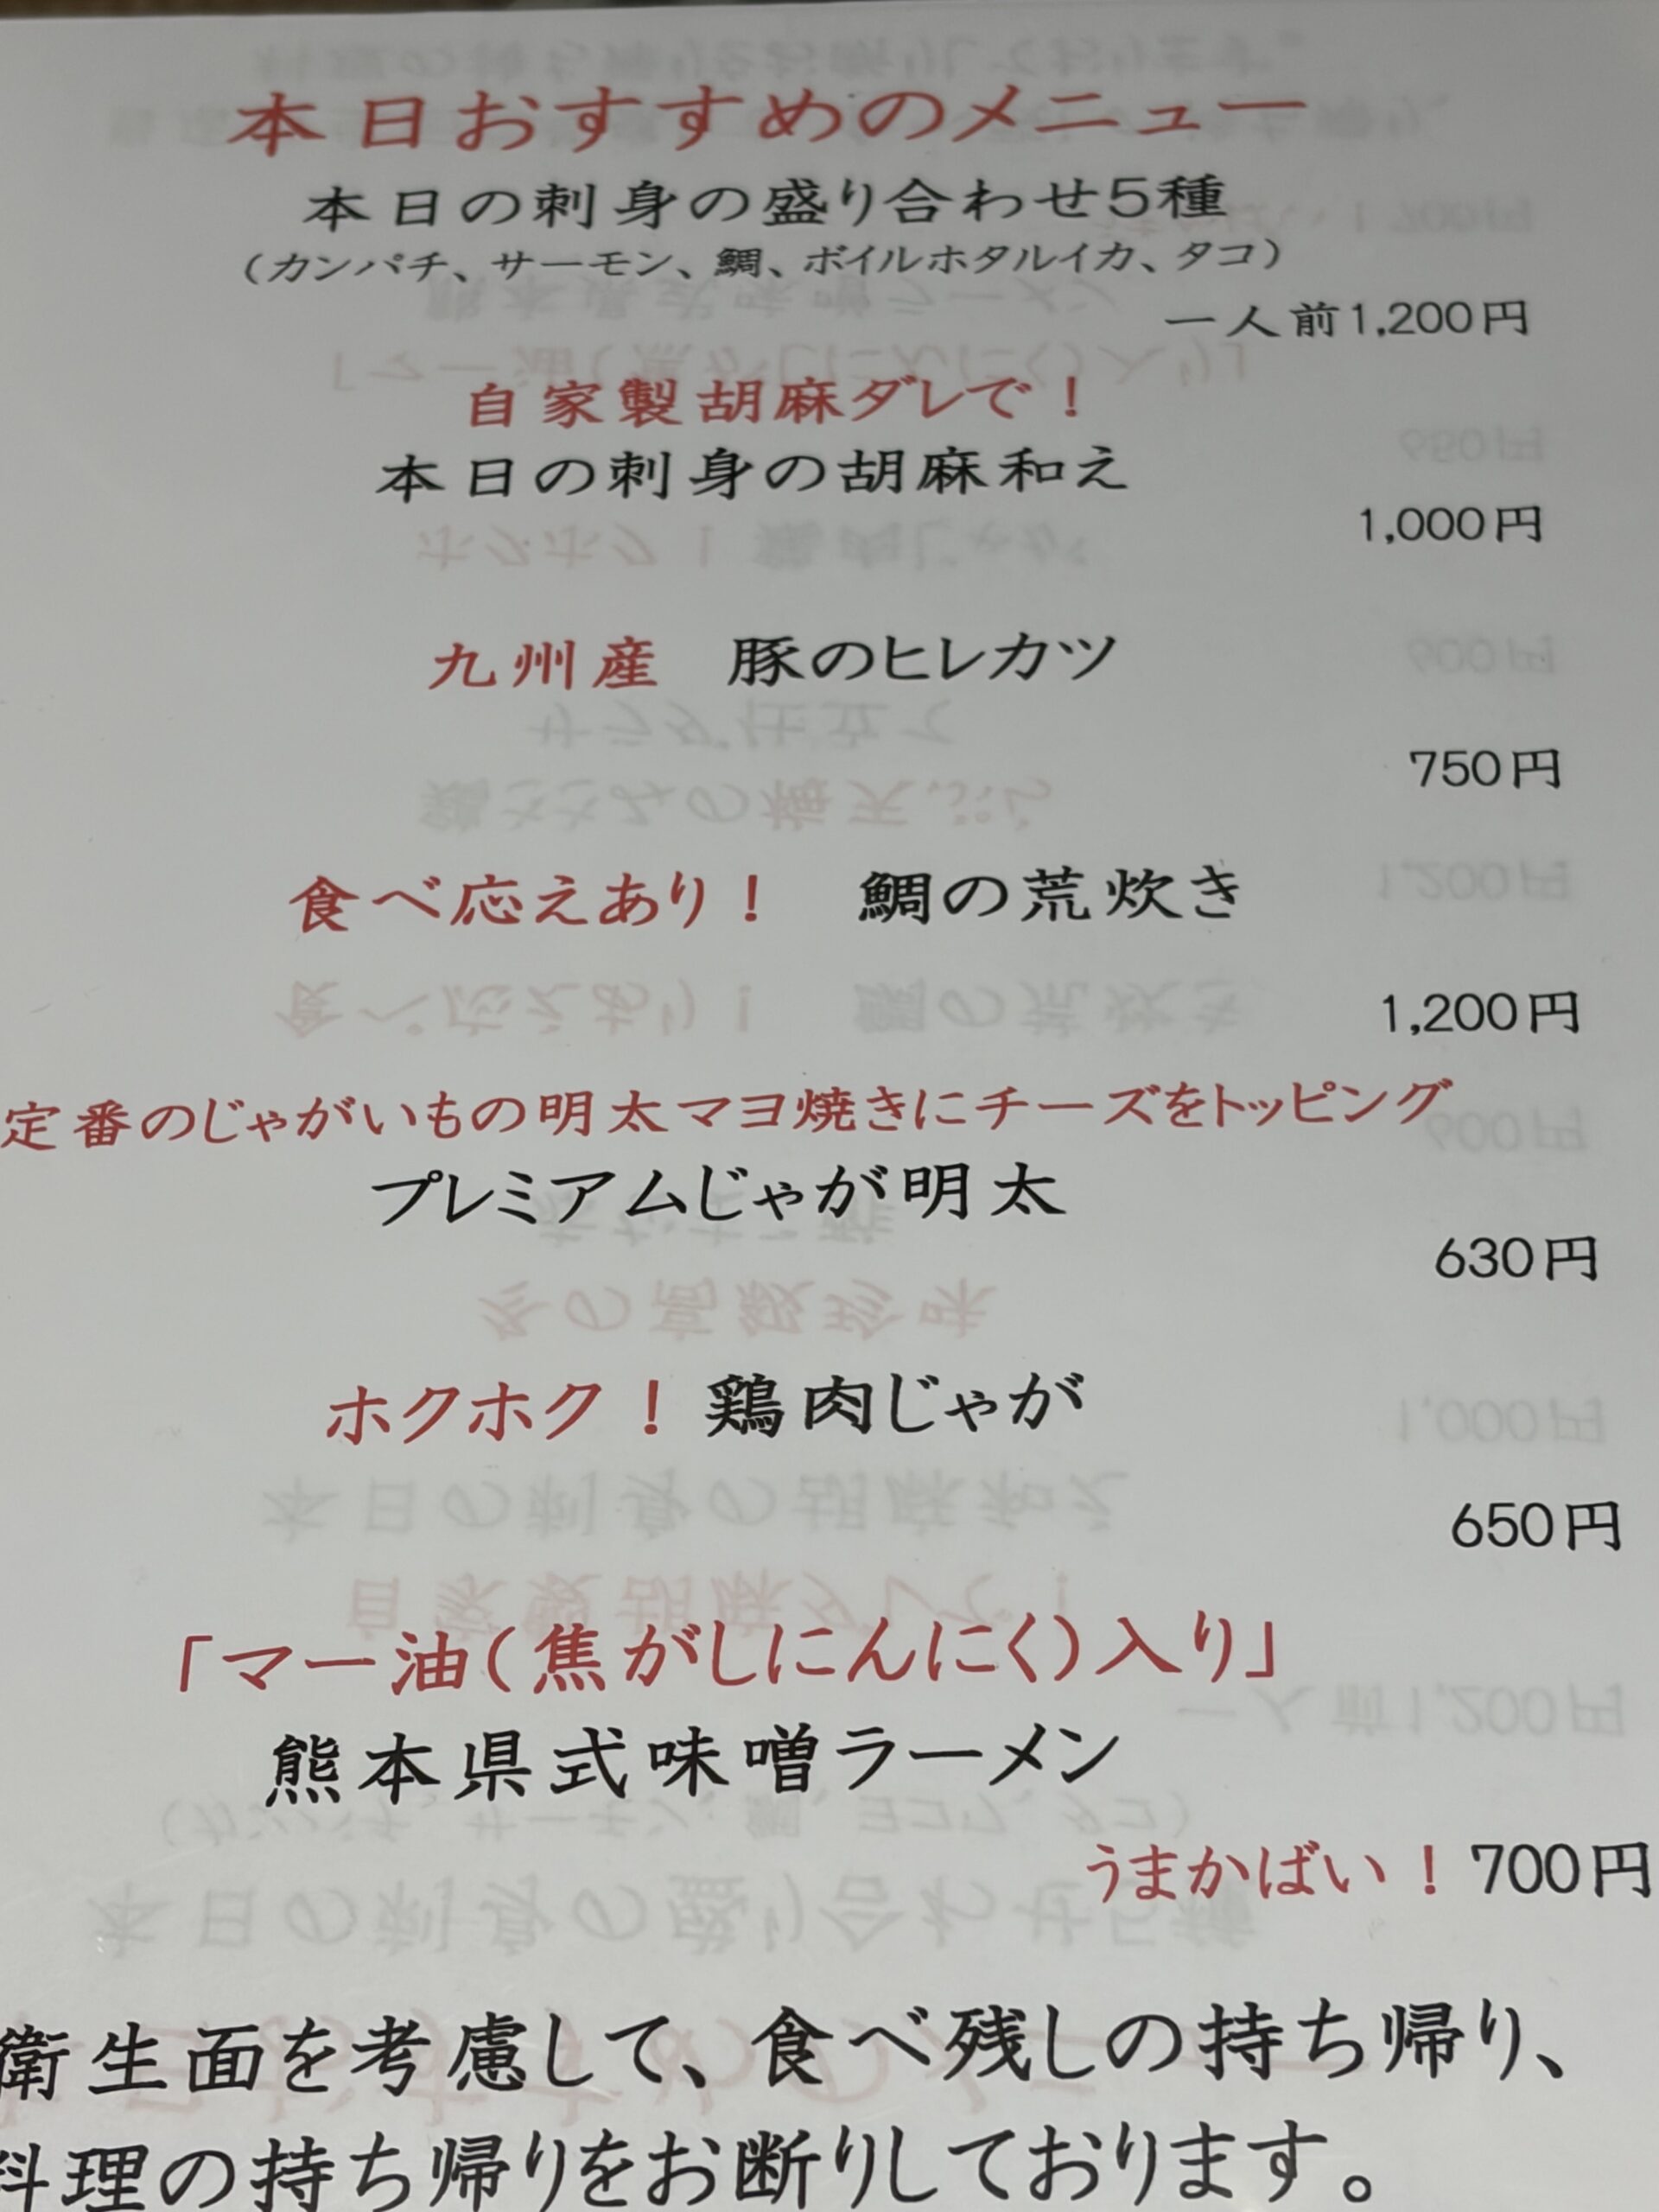 本日おすすめのメニュー
本日の刺身の盛り合わせ5種
（カンパチ、サーモン、鯛、ボイルホタルイカ、タコ）
一人前1,200円
自家製胡麻ダレで！
本日の刺身の胡麻和え
1,000円
九州産　豚のヒレカツ
750円
食べ応えあり！　鯛の荒炊き
1,200円
定番のじゃがいもの明太マヨ焼きにチーズをトッピング
プレミアムじゃが明太
630円
ホクホク！鶏肉じゃが
650円
「マー油（焦がしにんにく）入り」
熊本県式味噌ラーメン
うまかばい！700円
衛生面を考慮して、食べ残しの持ち帰り、
料理の持ち帰りをお断りしております。